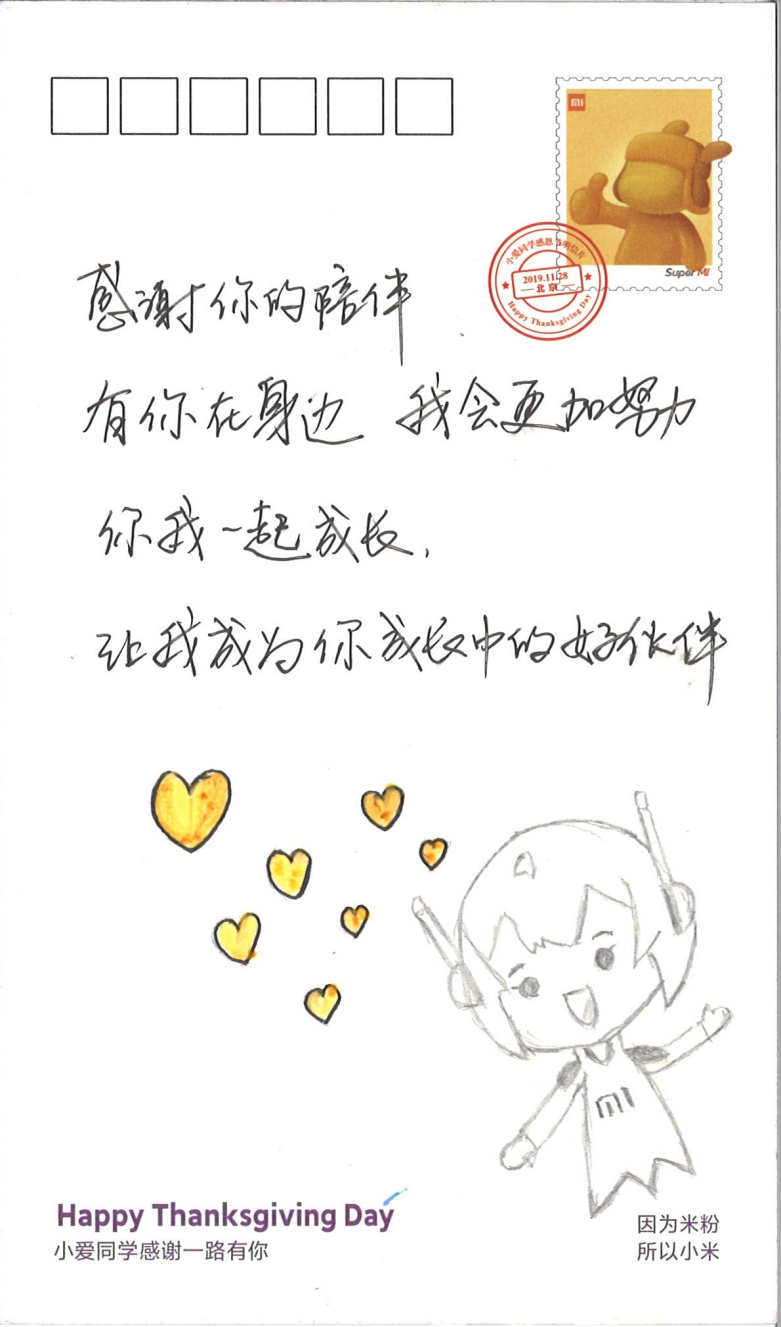 MI
Super MI
小爱同学感恩节明信片
2019.11.28
北京
Happy Thanksgiving Day
感谢你的陪伴
有你在身边 我会更加努力
你我一起成长,
让我成为你成长中的好伙伴
MI
Happy Thanksgiving Day
小爱同学感谢一路有你
因为米粉
所以小米